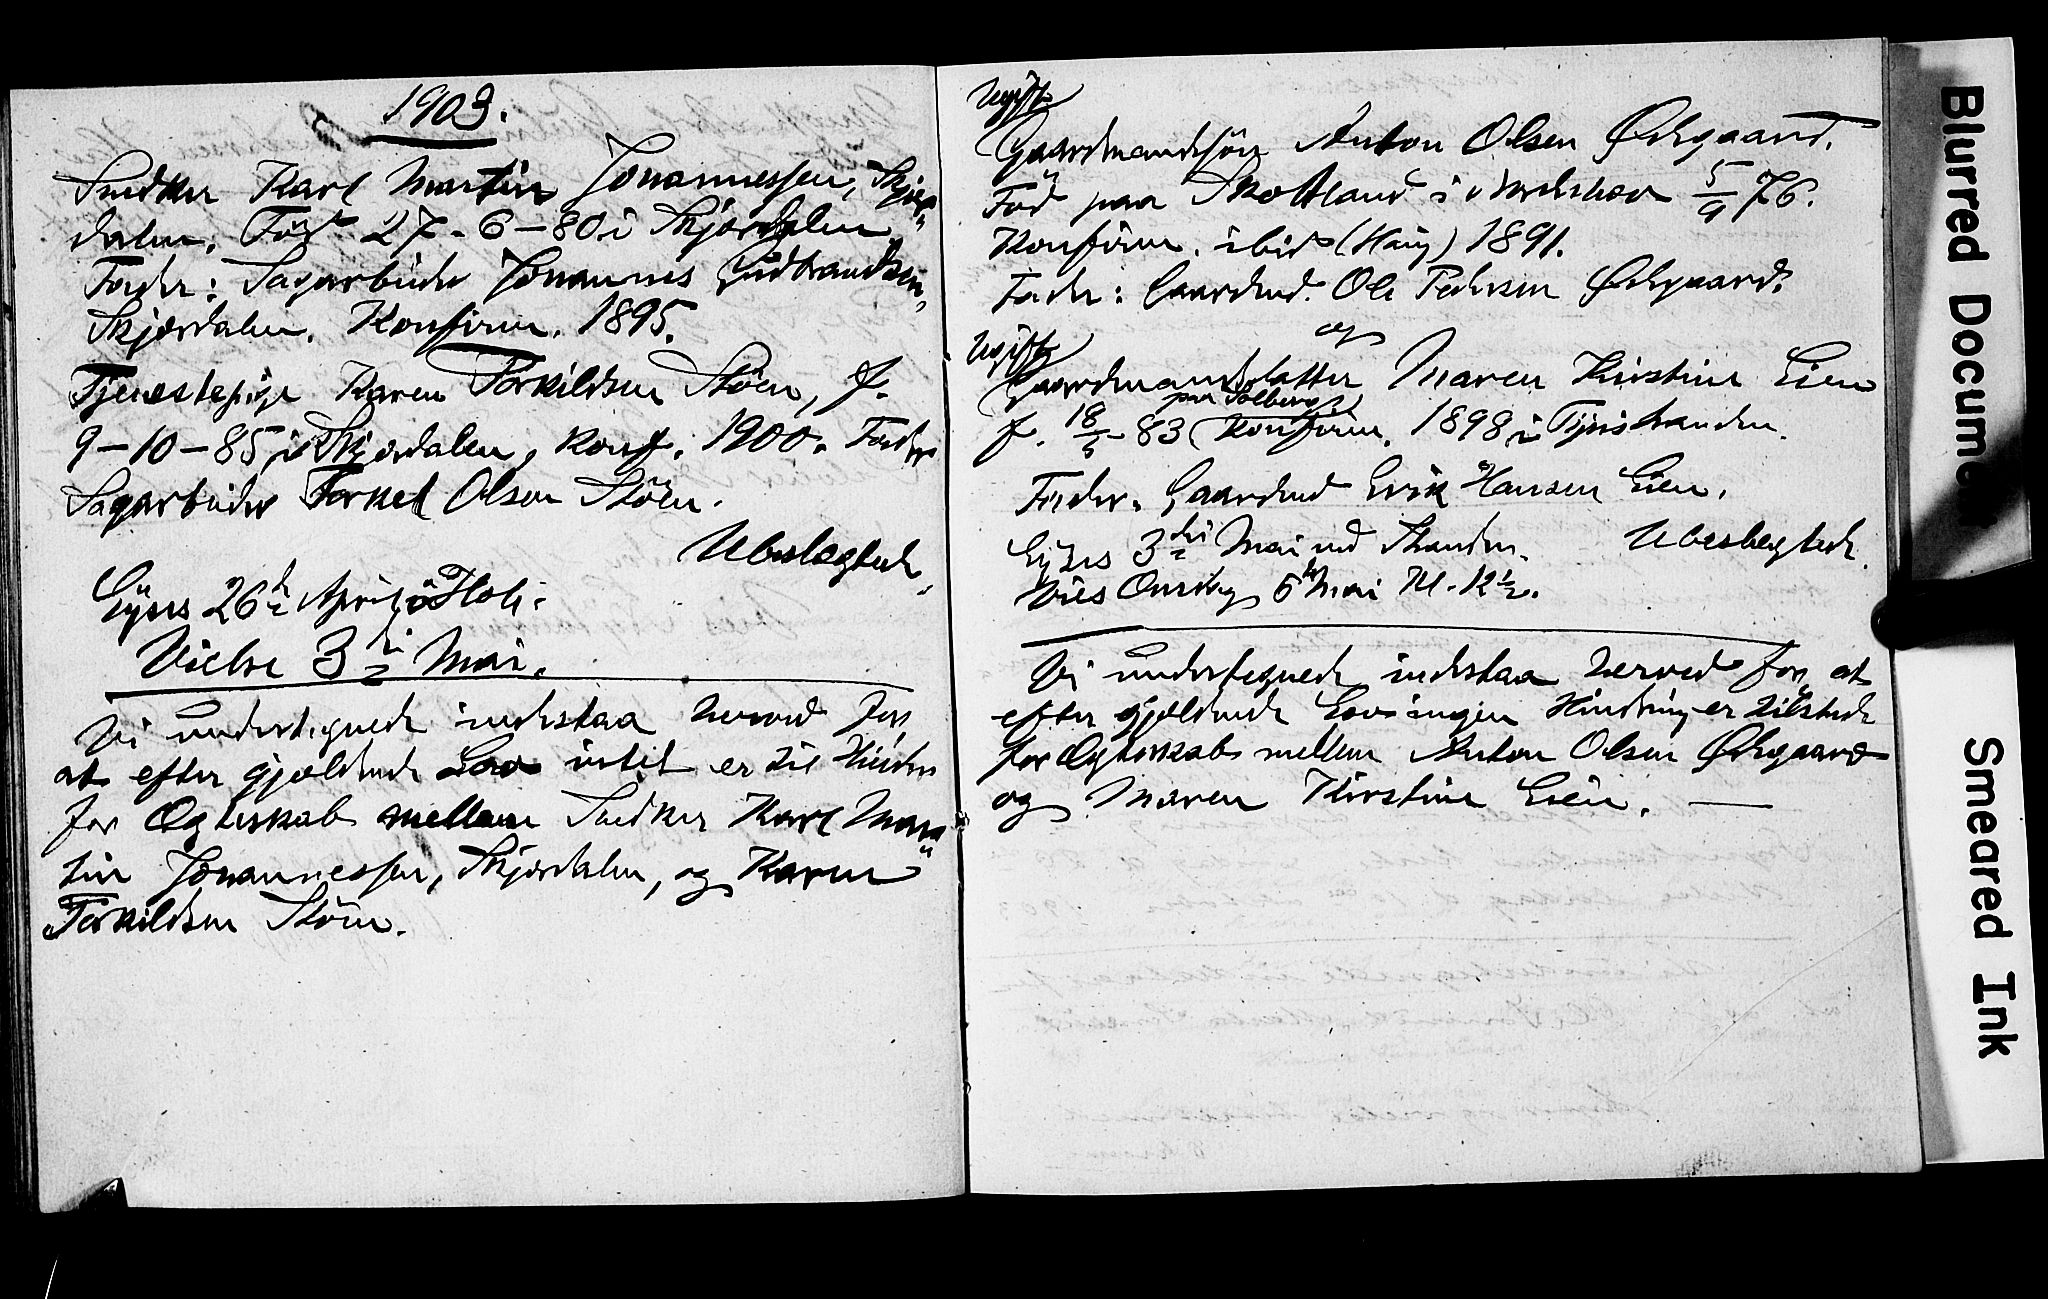 1903.
Snedker Karl Martin Johannessen, Skjør„
dalen. Föd 27-6-80 i Skjørdalen
Fader: Sagarbeider Johannes Gudbrandsen„
Skjørdalen. Konfirm. 1895.
Tjenestepige Karen Torkildsen Stöen, f.
9-10-85 i Skjørdalen, Konf. 1900. Fader
Sagarbeider Torkel Olsen Stöen.
Ubeslægtede.
Lyses 26de April i Hole.
Vielse 3die Mai.
Vi undertegnede indestaa herved for,
at efter gjældende Lov intet er til Hinder
for Ægteskab mellem Snedker Karl Mar„
tin Johannessen, Skjørdalen, og Karen
Torkildsen Stöen.
Ugift
Gaardmandssön Anton Olsen Ødegaard.
Föd paa Skotland i Norderhov 5/9 76.
Konfirm. ibid (Haug) 1891.
Fader: Gaardmd. Ole Pedersen Ødegaard.
og
Ugift
Gaardmandsdatter Maren Kirstine Eien
paa Solberg
f. 18/5 83 Konfirm. 1898 i Tyristranden.
Fader. Gaardmd Erik Hansen Eien.
Lyses 3die Mai ved Stranden. Ubeslegtede.
Vies Onsdag 6te Mai Kl. 12½.
Vi undertegnede indestaa herved for, at
efter gjældende Lov ingen Hindring er tilstede
for Ægteskab mellem Anton Olsen Ødegaard
og Maren Kirstine Eien. —
Blurred Document
Smeared Ink